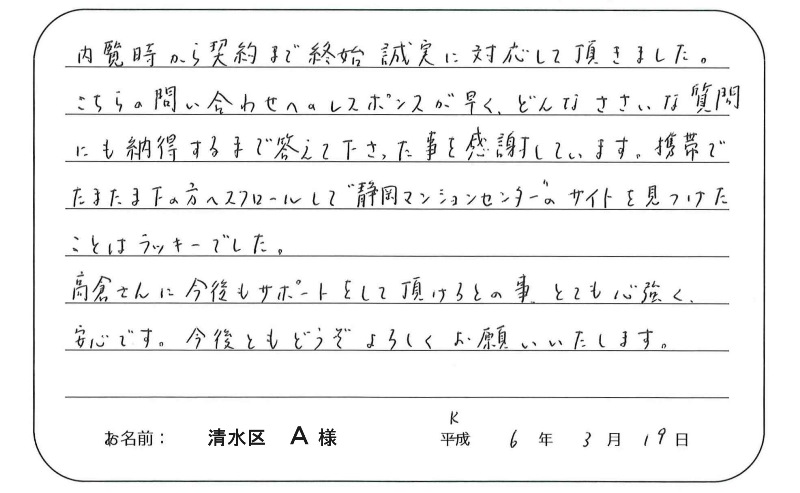 内覧時から契約まで終始 誠実に対応して頂きました。
こちらの問い合わせへのレスポンスが早く、どんなささいな質問
にも納得するまで答えて下さった事を感謝しています。携帯で
たまたま下の方へスクロールして“静岡マンションセンター”の サイトを見つけた
ことはラッキーでした。
高倉さんに今後もサポートをして頂けるとの事、とても心強く、
安心です。今後ともどうぞよろしくお願いいたします。
お名前： 清水区 A 様 平成 R 6 年 3 月 19 日